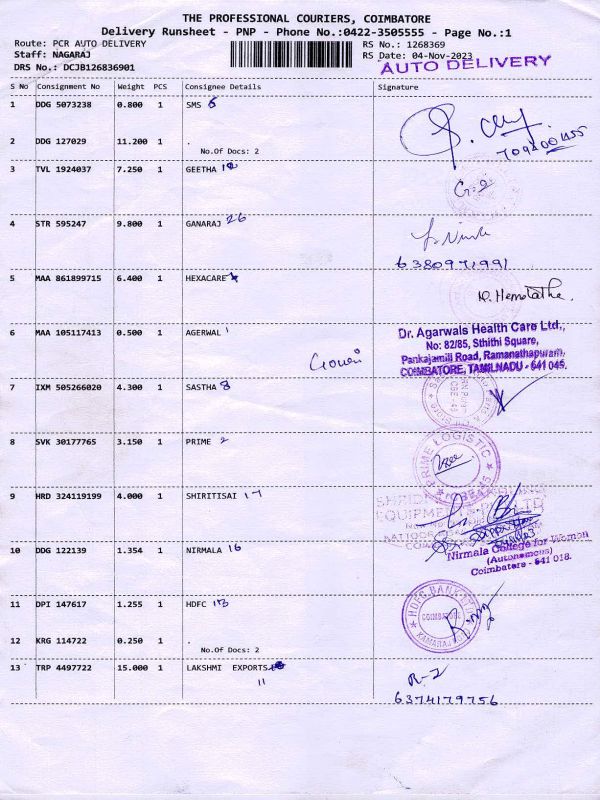 THE PROFESSIONAL COURIERS, COIMBATORE
Delivery Runsheet - PNP - Phone No.:0422-3505555 - Page No.:1
Route: PCR AUTO DELIVERY RS No.: 1268369
Staff: NAGARAJ RS Date: 04-Nov-2023
DRS No.: DCJB126836901 AUTO DELIVERY
S No Consignment No Weight PCS Consignee Details Signature
1 DDG 5073238 0.800 1 SMS 6
2 DDG 127029 11.200 1 .
No.Of Docs: 2
3 TVL 1924037 7.250 1 GEETHA
4 STR 595247 9.800 1 GANARAJ 26
6380971991
5 MAA 861899715 6.400 1 HEXACARE
6 MAA 105117413 0.500 1 AGERWAL 1
Dr. Agarwals Health Care Ltd.,
No: 82/85, Sthithi Square,
Pankajamill Road, Ramanathapuram,
COIMBATORE, TAMILNADU - 641 045.
7 IXM 505266020 4.300 1 SASTHA 8
8 SVK 30177765 3.150 1 PRIME 2
PRIME LOGISTIC
9 HRD 324119199 4.000 1 SHIRITISAI 17
10 DDG 122139 1.354 1 NIRMALA 16
Nirmala College for Women
(Autonomous)
Coimbatore - 641 018.
11 DPI 147617 1.255 1 HDFC 13
HDFC BANK
COIMBATORE
12 KRG 114722 0.250 1 .
No.Of Docs: 2
13 TRP 4497722 15.000 1 LAKSHMI EXPORTS
11
6374179756